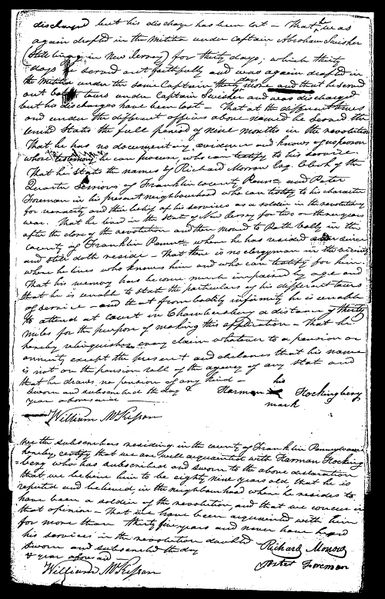 discharged but his discharge has been lost - That he was
again drafted in the Militia under Captain Abraham Swisher
(still being in New Jersey) for thirty days, which thirty
days he served out faithfully and was again drafted in
the Militia under the same Captain thirty days more and that he served
out both tours under Captain Swisher and was discharged
but his discharges have been lost - That at the different times
and under the different officers above named he served the
United States the full period of nine months in the revolution
That he has no documentary evidence and knows of no person
whose testimony he can procure, who can testify to his service
That he states the names of Richard Morrow Esq. Clerk of the
Quarter Sessions of Franklin county Pennsa. and Peter
Foreman in his present neighbourhood who can testify to his character
for veracity and their belief of his services as a soldier in the revolutionary
war - That he lived in the State of New Jersey for two or three years
after the close of the revolution and then moved to Path Valley in this
county of Franklin Pennsa. where he has resided ever since
and still doth reside - That there is no clergyman in the vicinity
where he lives who knows him and who can testify for him
That his memory has become much impaired by age and
that he is unable to state the particulars of his different tours
of service - and that from bodily infirmity he is unable
to attend at court in Chambersburg a distance of thirty
miles for the purpose of making this application - That he
hereby relinquishes every claim whatever to a pension or
annuity except the present and declares that his name
is not on the pension roll of the agency of any state and
that he draws no pension of any kind -
Sworn and subscribed the day & his
year aforesaid Harman X Hockingbery
mark
William McKisson
We the subscribers residing in the county of Franklin Pennsylvania
hereby certify that we are well acquainted with Harman Hocking
bery who has subscribed and sworn to the above declaration
that we believe him to be eighty nine years old that he is
reputed and believed in the neighbourhood where he resides to
have been a soldier of the revolution and that we concur in
that opinion - That we have been acquainted with him
for more than thirty five years and never have heard
his services in the revolution doubted
Sworn and subscribed the day Richard Morrow
& year aforesaid - Peter Foreman
William McKisson